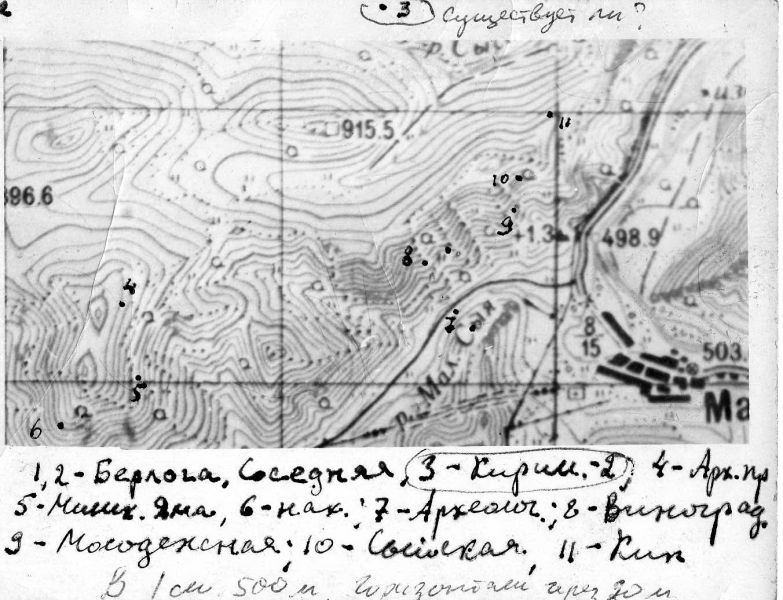 2
• 3 существует ли?
р. Сыя
915.5
11
10
896.6
9
+1.3 498.9
8
4
7
8
15
503.
5
р. Мал. Сыя
Ма
6
1,2 - Берлога, Соседняя, 3 - Кирил.-2, 4 - Арх. пр
5 - Миших. Яма, 6 - нак.; 7 - Археолог.; 8 - Виноград.
9 - Молодежная; 10 - Сыйская, 11 - Кик
В 1 см 500 м, горизонтали через 20 м